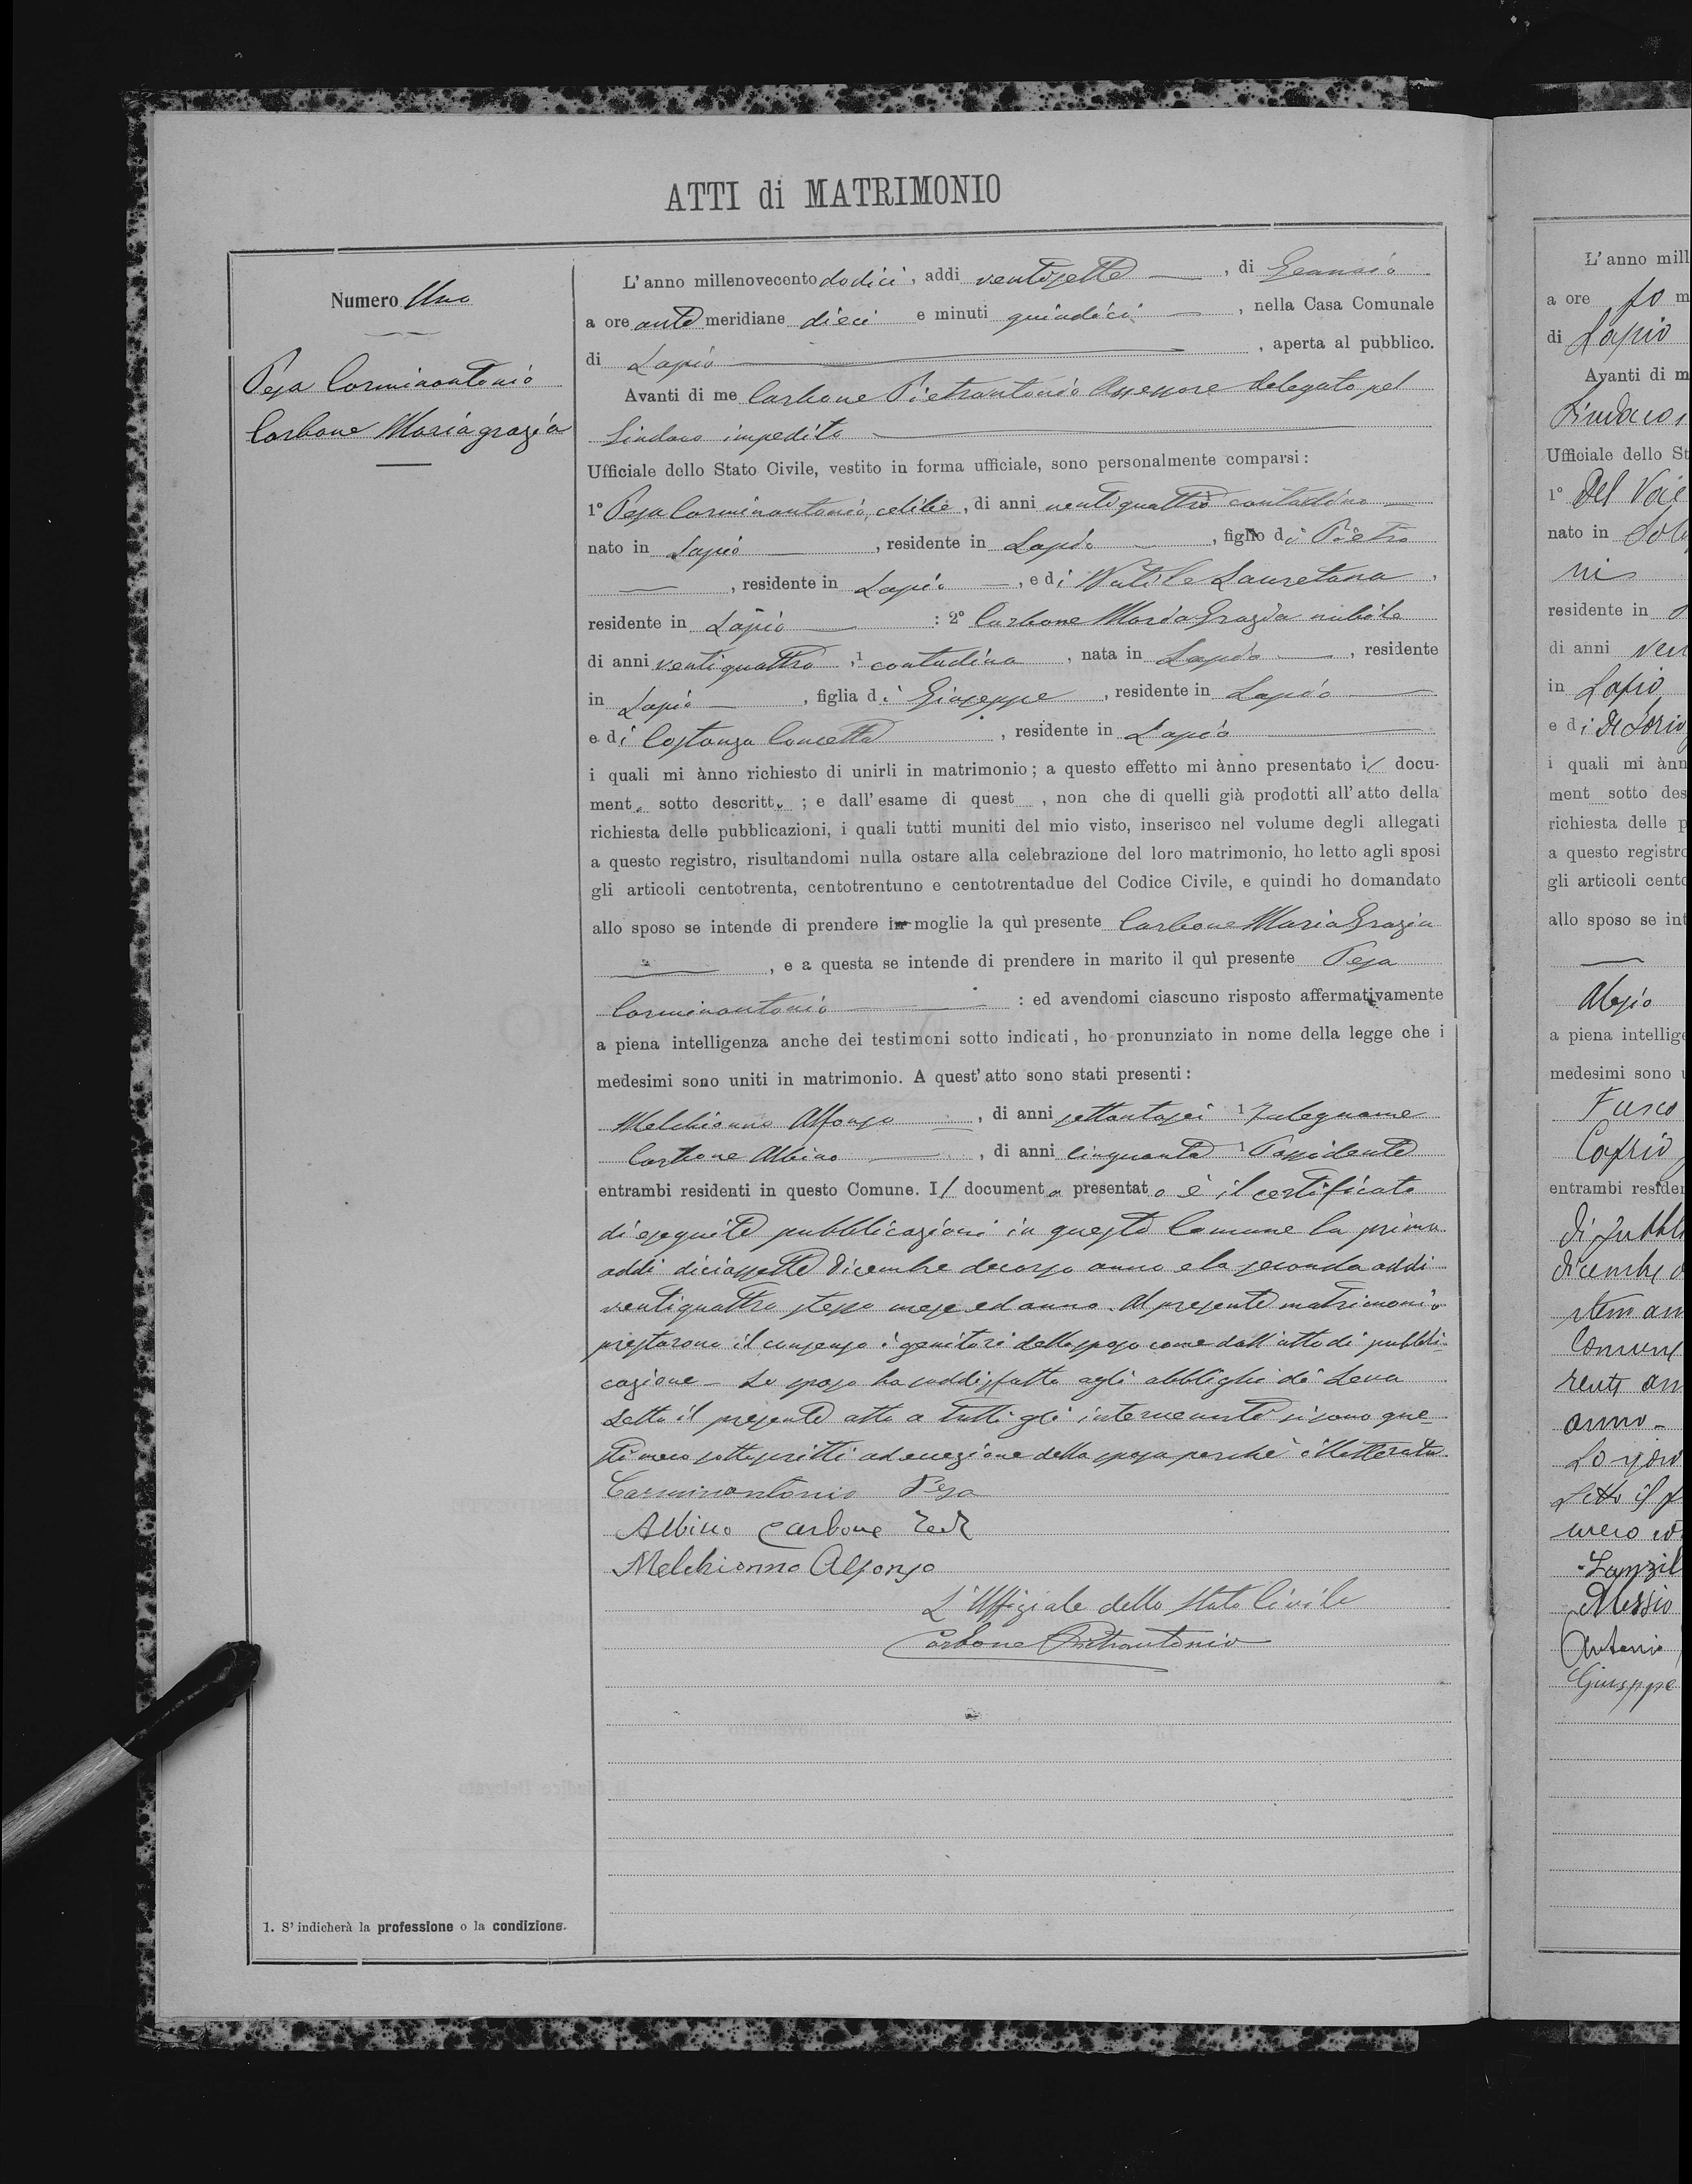 ATTI di MATRIMONIO
Numero Uno
Pesa Carminantonio
Carbone Mariagrazia
L'anno millenovecento dodici, addi ventisette, di Gennaio
a ore anti meridiane dieci e minuti quindici, nella Casa Comunale
di Lapio, aperta al pubblico.
Avanti di me Carbone Pietrantonio Assessore delegato pel
Sindaco impedito
Ufficiale dello Stato Civile, vestito in forma ufficiale, sono personalmente comparsi:
1° Pesa Carminantonio, celibe, di anni ventiquattro contadino
nato in Lapio, residente in Lapio, figlio di Pietro
, residente in Lapio, e di Lauretana,
residente in Lapio : 2° Carbone Maria Grazia nubile
di anni ventiquattro, 1 contadina, nata in Lapio, residente
in Lapio, figlia di Giuseppe, residente in Lapio
e di Costanza Concetta, residente in Lapio
i quali mi ànno richiesto di unirli in matrimonio; a questo effetto mi ànno presentato il docu-
ment sotto descritt ; e dall'esame di quest , non che di quelli già prodotti all'atto della
richiesta delle pubblicazioni, i quali tutti muniti del mio visto, inserisco nel volume degli allegati
a questo registro, risultandomi nulla ostare alla celebrazione del loro matrimonio, ho letto agli sposi
gli articoli centotrenta, centotrentuno e centotrentadue del Codice Civile, e quindi ho domandato
allo sposo se intende di prendere in moglie la quì presente Carbone Maria Grazia
, e a questa se intende di prendere in marito il quì presente Pesa
Carminantonio : ed avendomi ciascuno risposto affermativamente
a piena intelligenza anche dei testimoni sotto indicati, ho pronunziato in nome della legge che i
medesimi sono uniti in matrimonio. A quest'atto sono stati presenti:
Melchionno Alfonso, di anni settantasei 1 Falegname
Carbone Albino, di anni cinquanta 1 Possidente
entrambi residenti in questo Comune. Il documento presentato è il certificato
di eseguite pubblicazioni in questo Comune la prima
addi diciassette Dicembre decorso anno e la seconda addi
ventiquattro stesso mese ed anno. Al presente matrimonio
prestarono il consenso i genitori dello sposo come dall'atto di pubbli-
cazione - Lo sposo ha soddisfatto agli obblighi di Leva
Letto il presente atto a tutti gli intervenuti si sono que-
sti meco sottoscritti ad eccezione della sposa perchè illetterata
Carminantonio Pesa
Albino Carbone
Melchionno Alfonso
L'Uffiziale dello Stato Civile
Carbone Pietrantonio
1. S'indicherà la professione o la condizione.
L'anno mill
a ore
di Lapio
Avanti di m
Sindaco
Ufficiale dello St
1° Del
nato in
residente in
di anni ven
in Lapio
e di
i quali mi ànn
ment sotto des
richiesta delle p
a questo registro
gli articoli cento
allo sposo se int
a piena intellige
medesimi sono u
Fusco
entrambi residen
di pubbli
dicembre
anno -
Lo sposo
Letto il p
Alessio
Antonio
Giuseppe